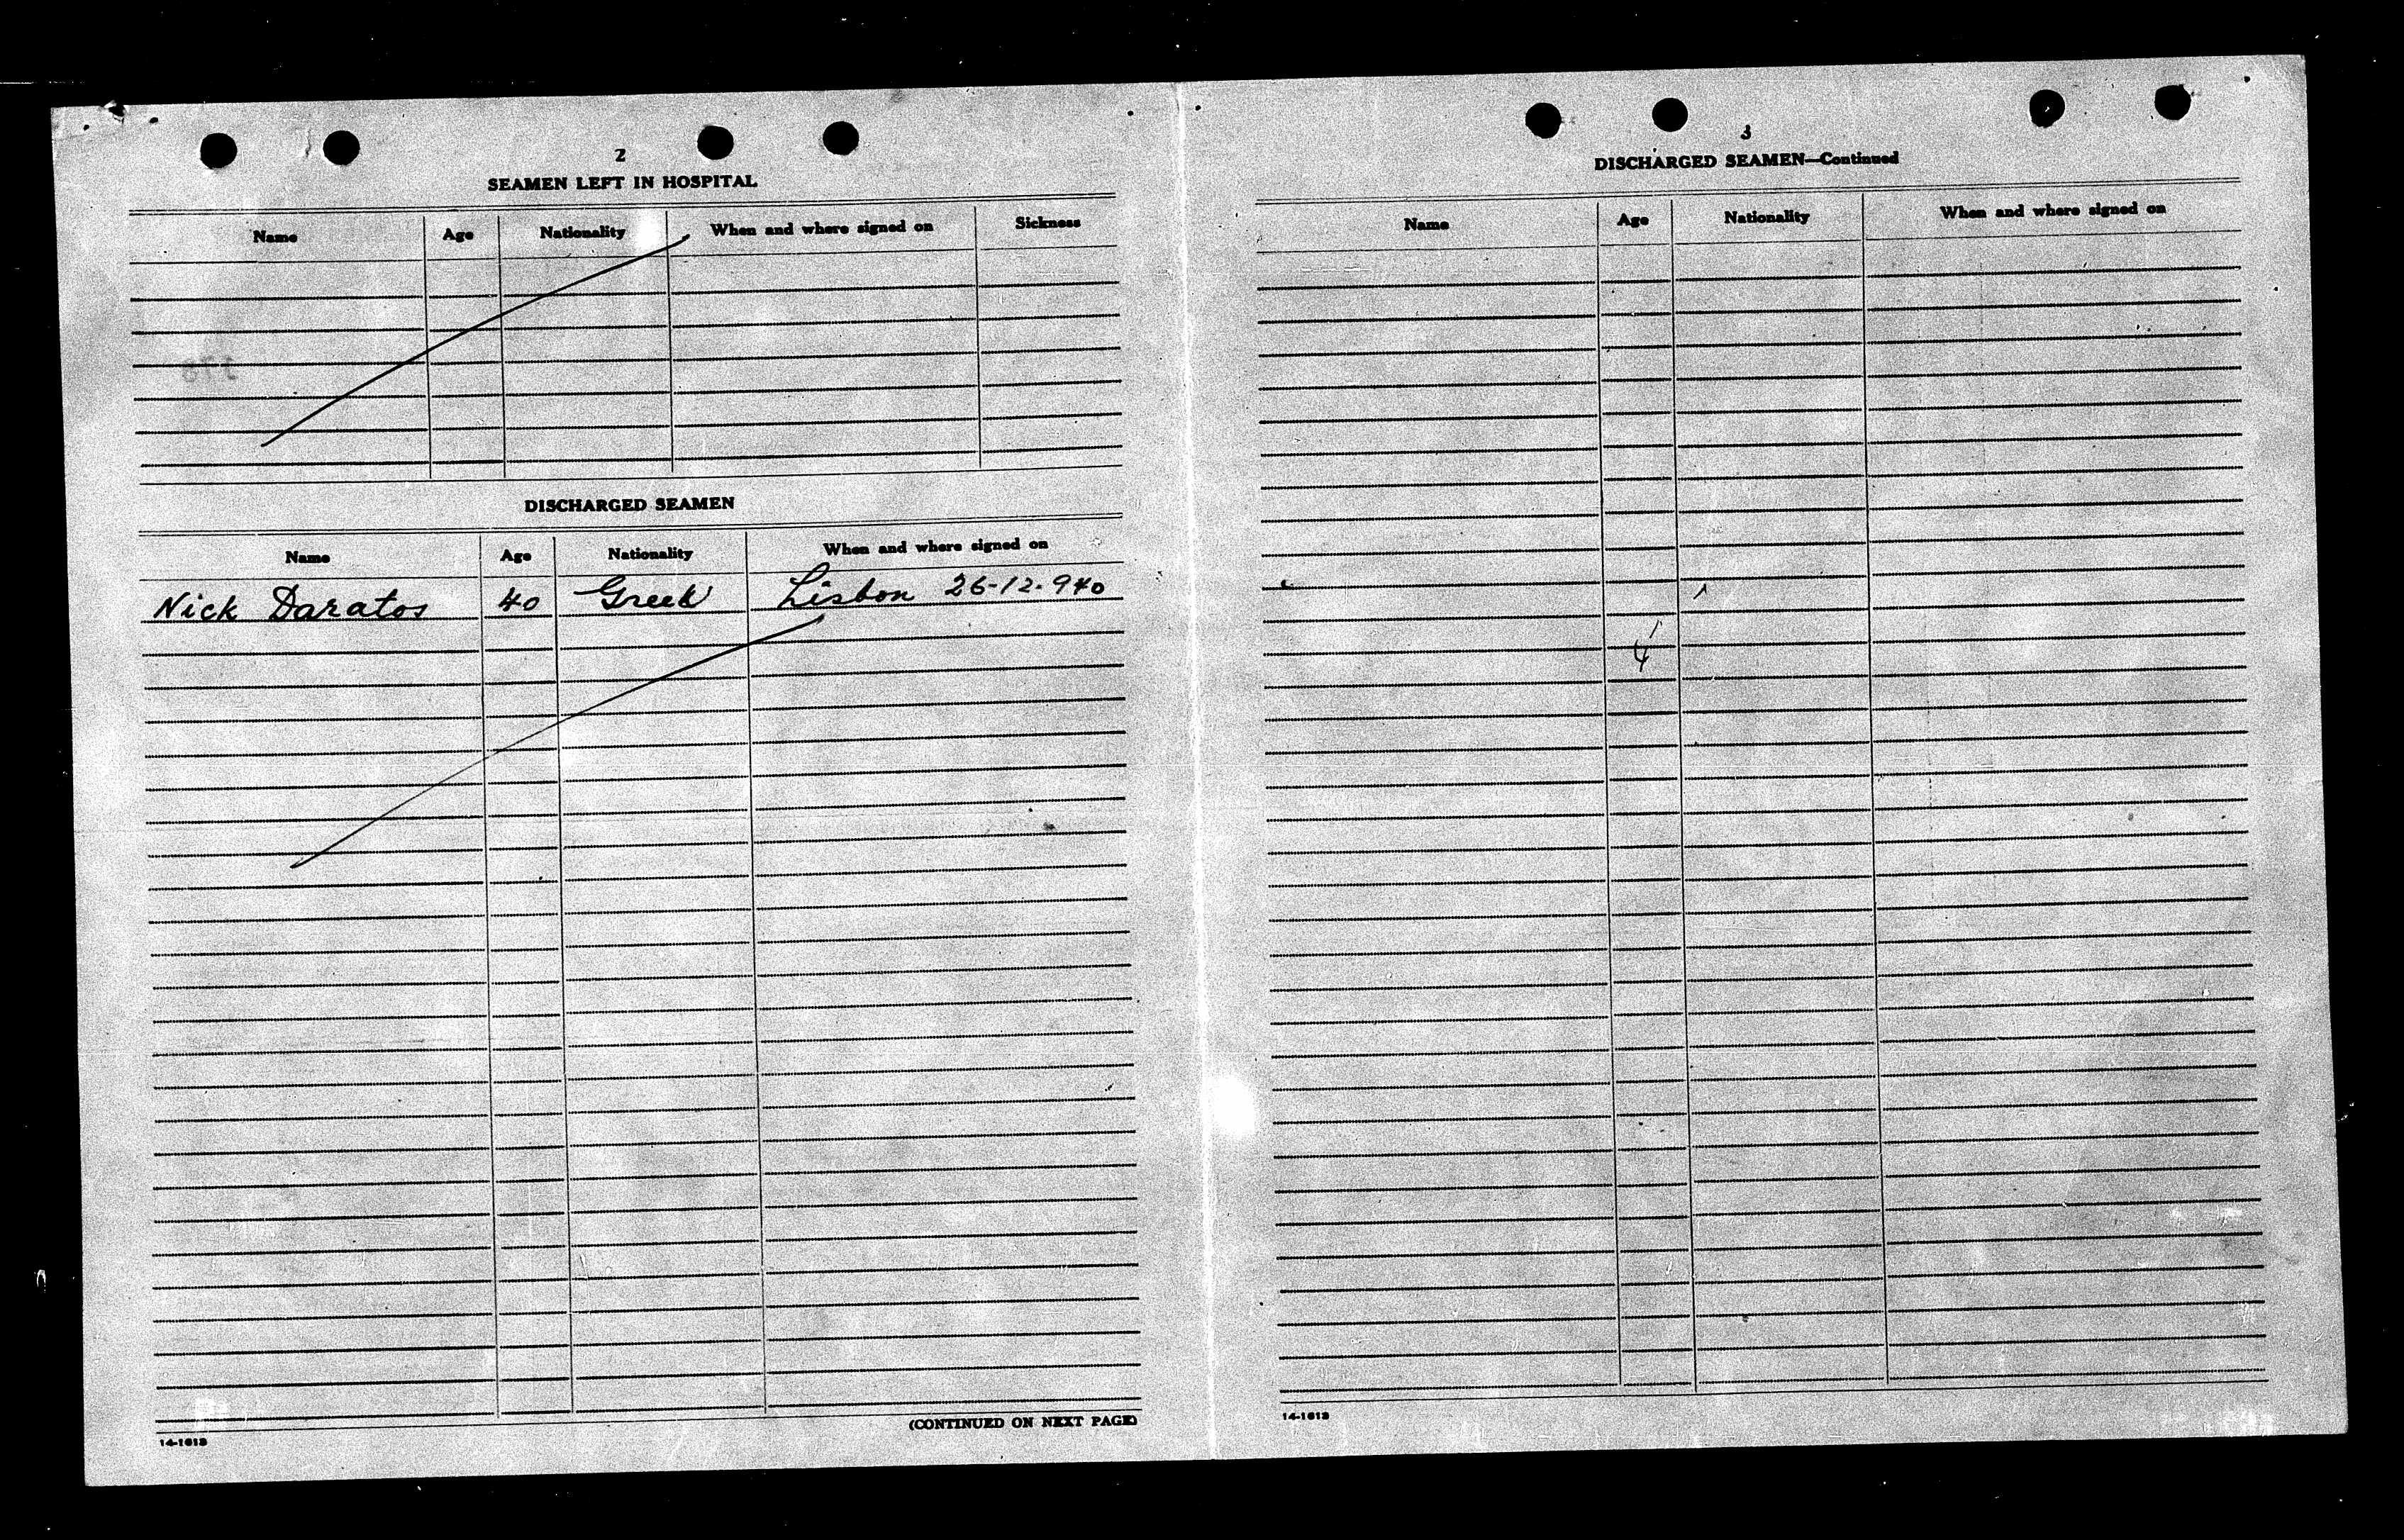 2
SEAMEN LEFT IN HOSPITAL
Name Age Nationality When and where signed on Sickness
DISCHARGED SEAMEN
Name Age Nationality When and where signed on
Nick Daratos 40 Greek Lisbon 26-12-940
(CONTINUED ON NEXT PAGE)
14-1613
3
DISCHARGED SEAMEN—Continued
Name Age Nationality When and where signed on
14-1613